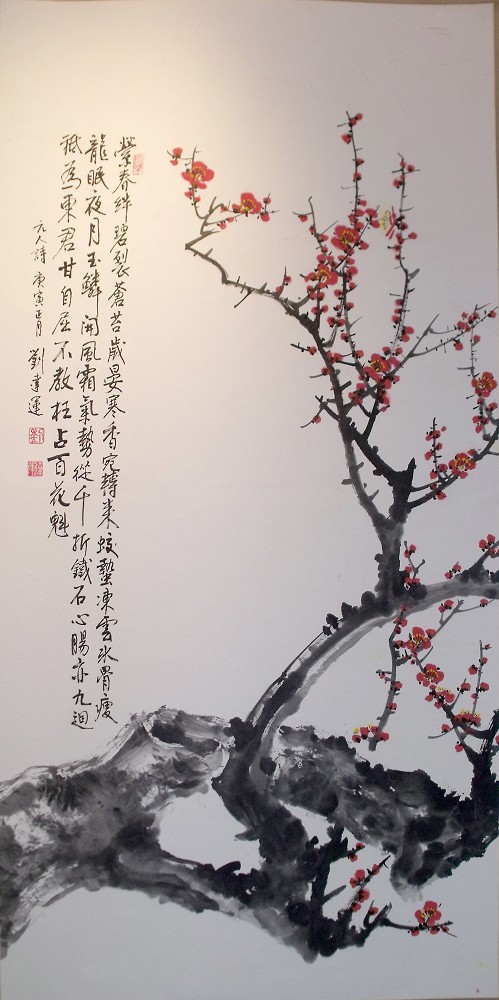 縈春絆碧裂蒼苔歲晏寒香宛轉来蛟蟄凍雲氷骨瘦
龍眠夜月玉鱗開風霜氣勢從千折鐵石心腸亦九迴
祗為東君甘自屈不教枉占百花魁
元人詩庚寅正月劉達運